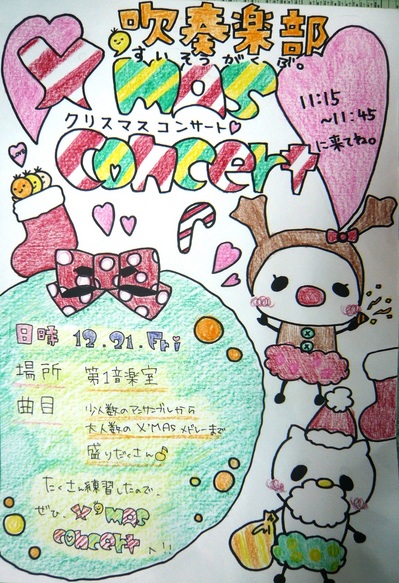 吹奏楽部
すいそうがくぶ。
X'mas
クリスマスコンサート♡
concert
11:15
~11:45
に来てね。
日時 12.21.Fri
場所 第1音楽室
曲目 少人数のアンサンブルから
大人数のX'MASメドレーまで
盛りだくさん♪
たくさん練習したので、
ぜひ、X'mas
concert
へ!!